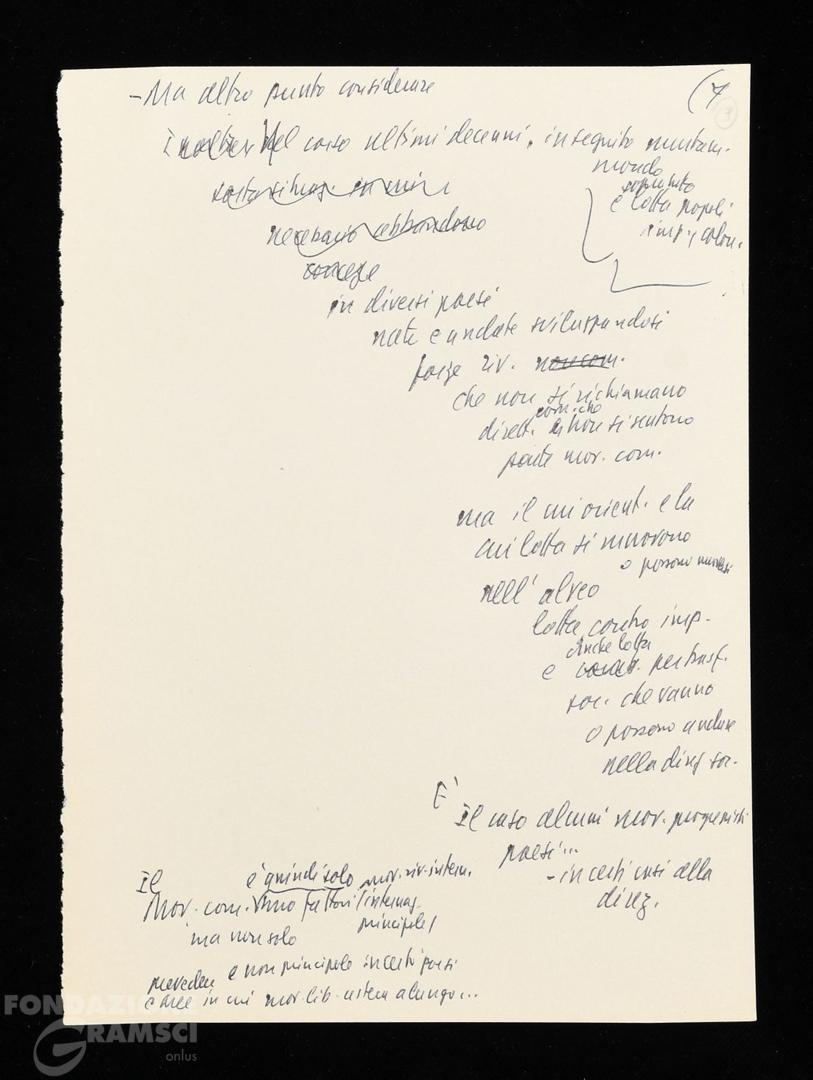 - Ma altro punto considerare
(7
3
Nel corso ultimi decenni, in seguito mutam.
mondo
soprattutto
e lotta popoli
imp. e colon.
necessario abbandono
in diversi paesi
nate e andate sviluppandosi
forze riv. non com.
che non si richiamano
com. che
dirett. non si sentono
parte mov. com.
ma il cui orient. e la
cui lotta si muovono
o possono muoversi
nell' alveo
lotta contro imp.
anche lotta
e per trasf.
soc. che vanno
o possono andare
nella direz. soc.
E'
Il caso alcuni mov. progressisti
paesi...
- in certi casi alla
direz.
Il è quindi solo mov. riv. intern.
Mov. com. uno fattori (internaz.
principale)
ma non solo
prevedere e non principale in certi paesi
e aree in cui mov. lib. a lungo...
FONDAZIONE
GRAMSCI
onlus